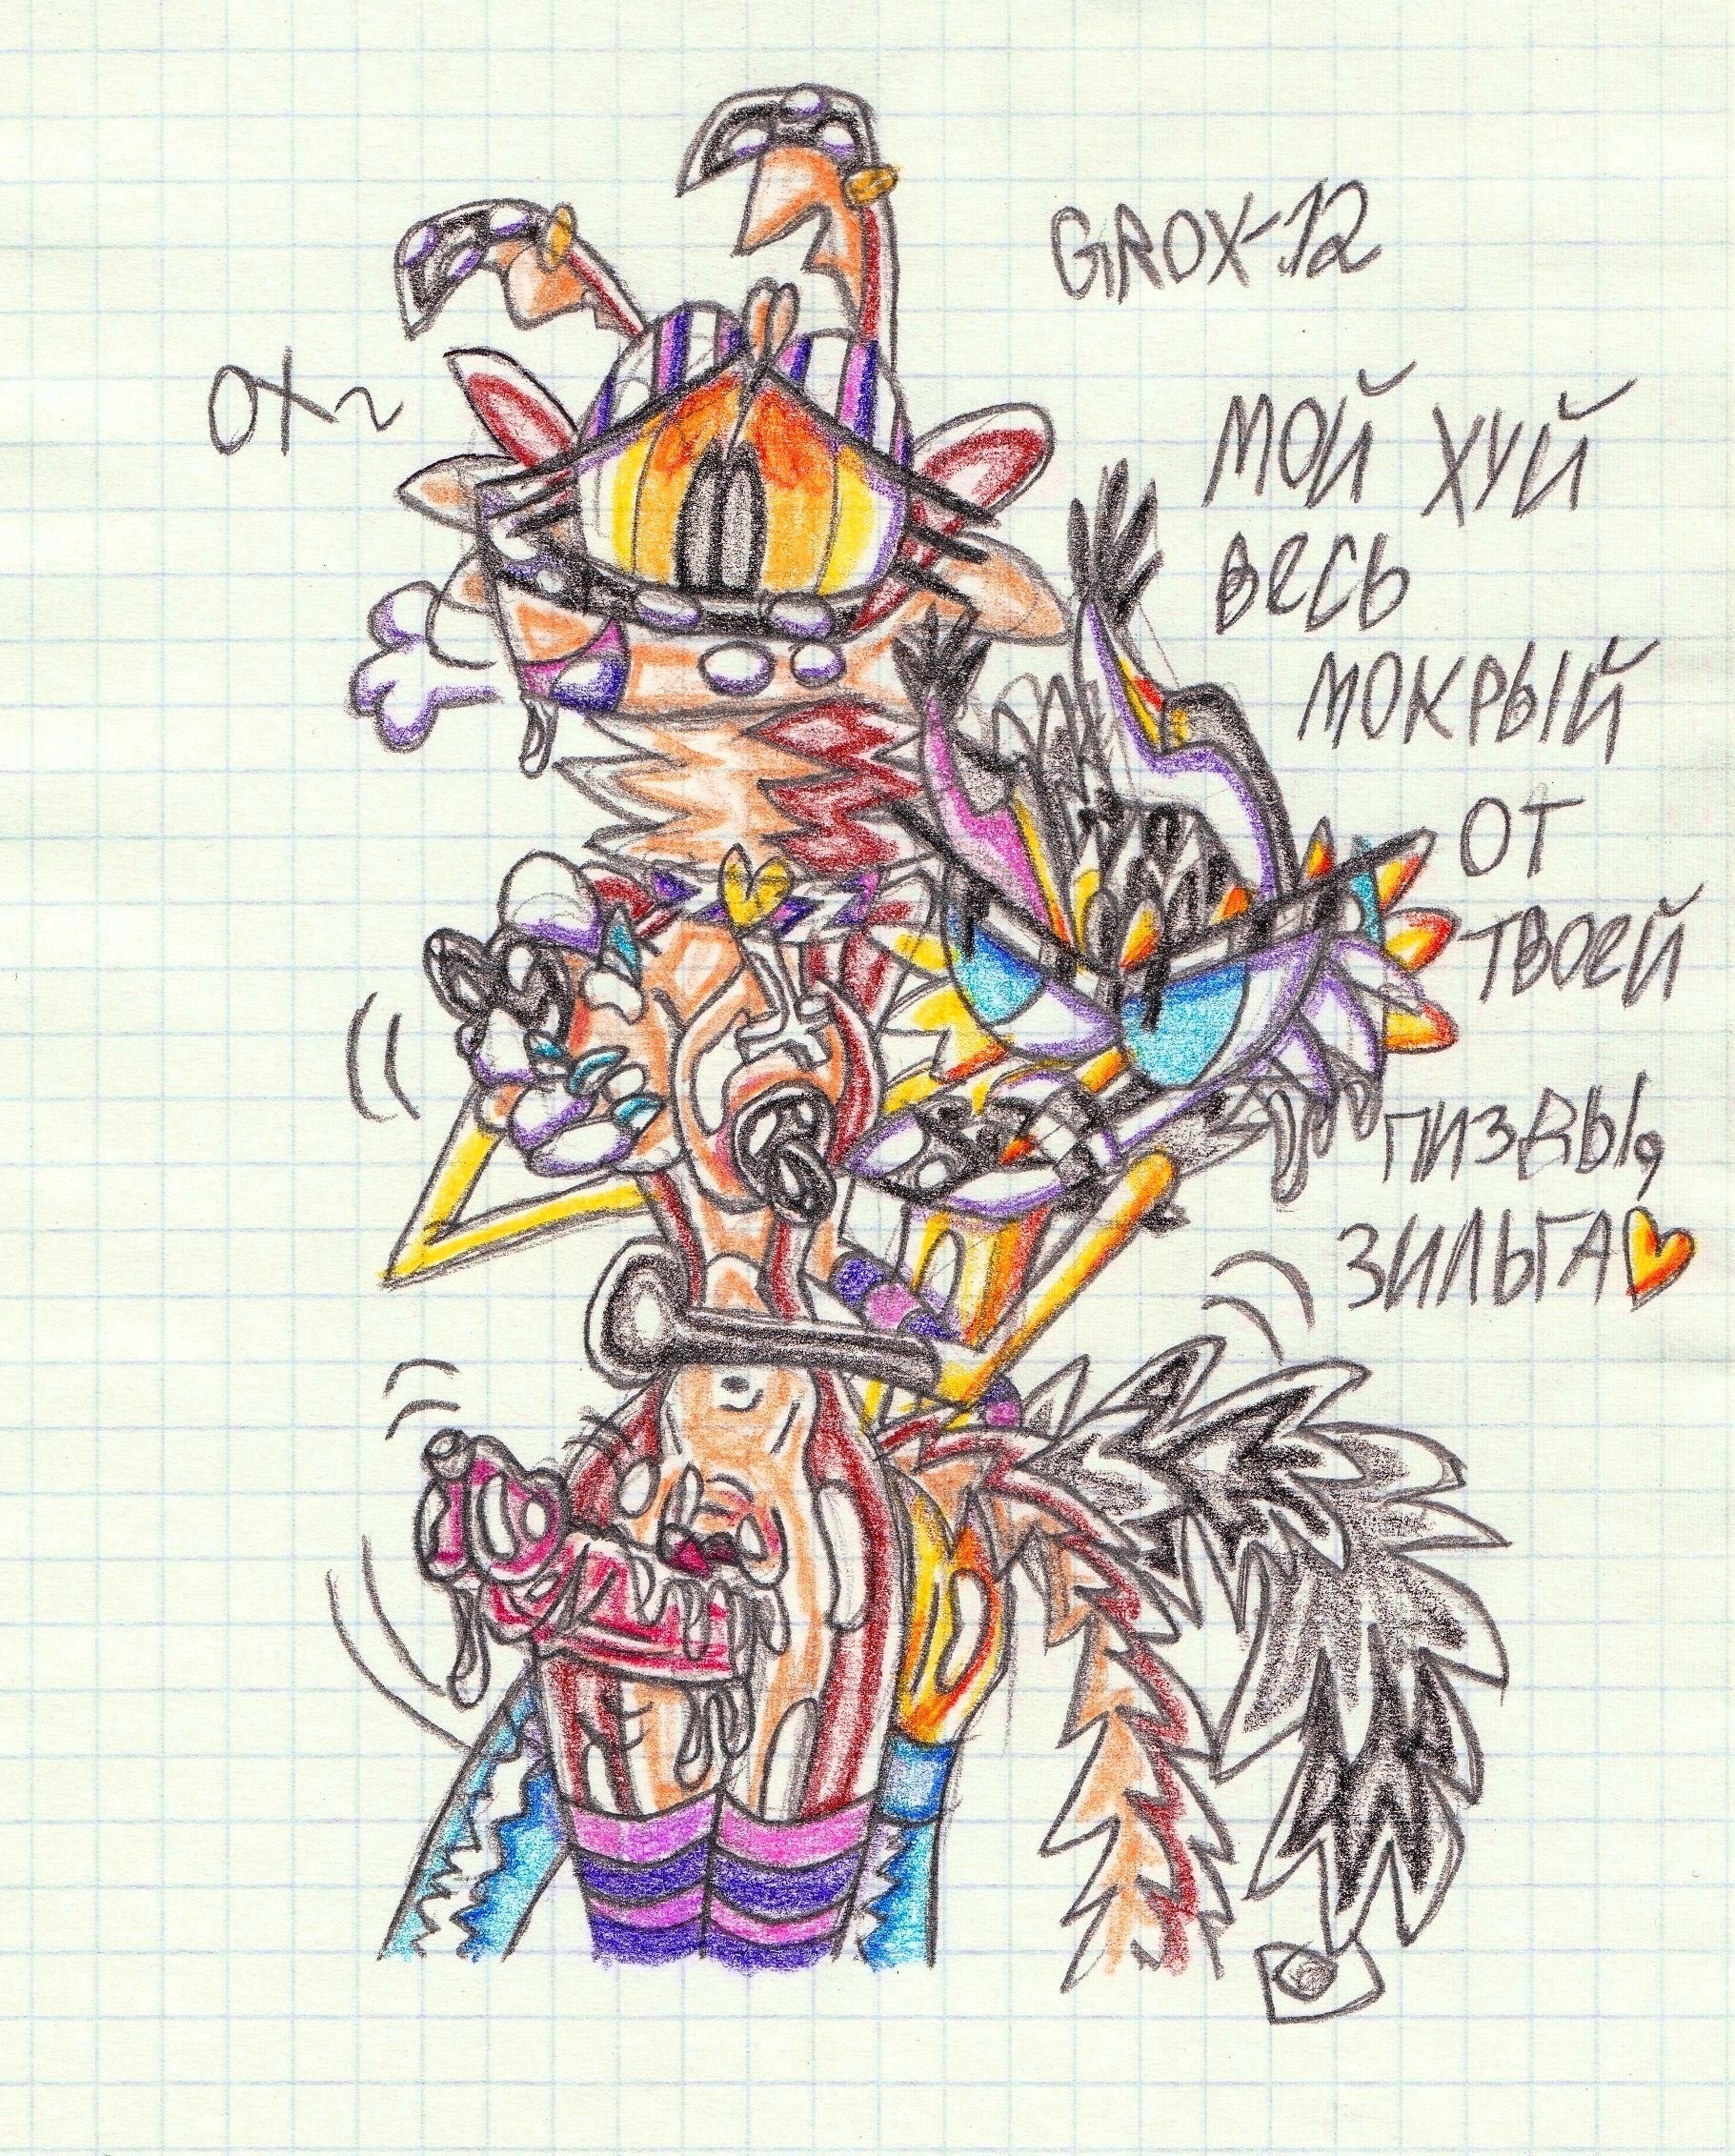 GROX-12
ОХ~
МОЙ ХУЙ
ВЕСЬ
МОКРЫЙ
ОТ
ТВОЕЙ
ПИЗДЫ,
ЗИЛЬГА♥